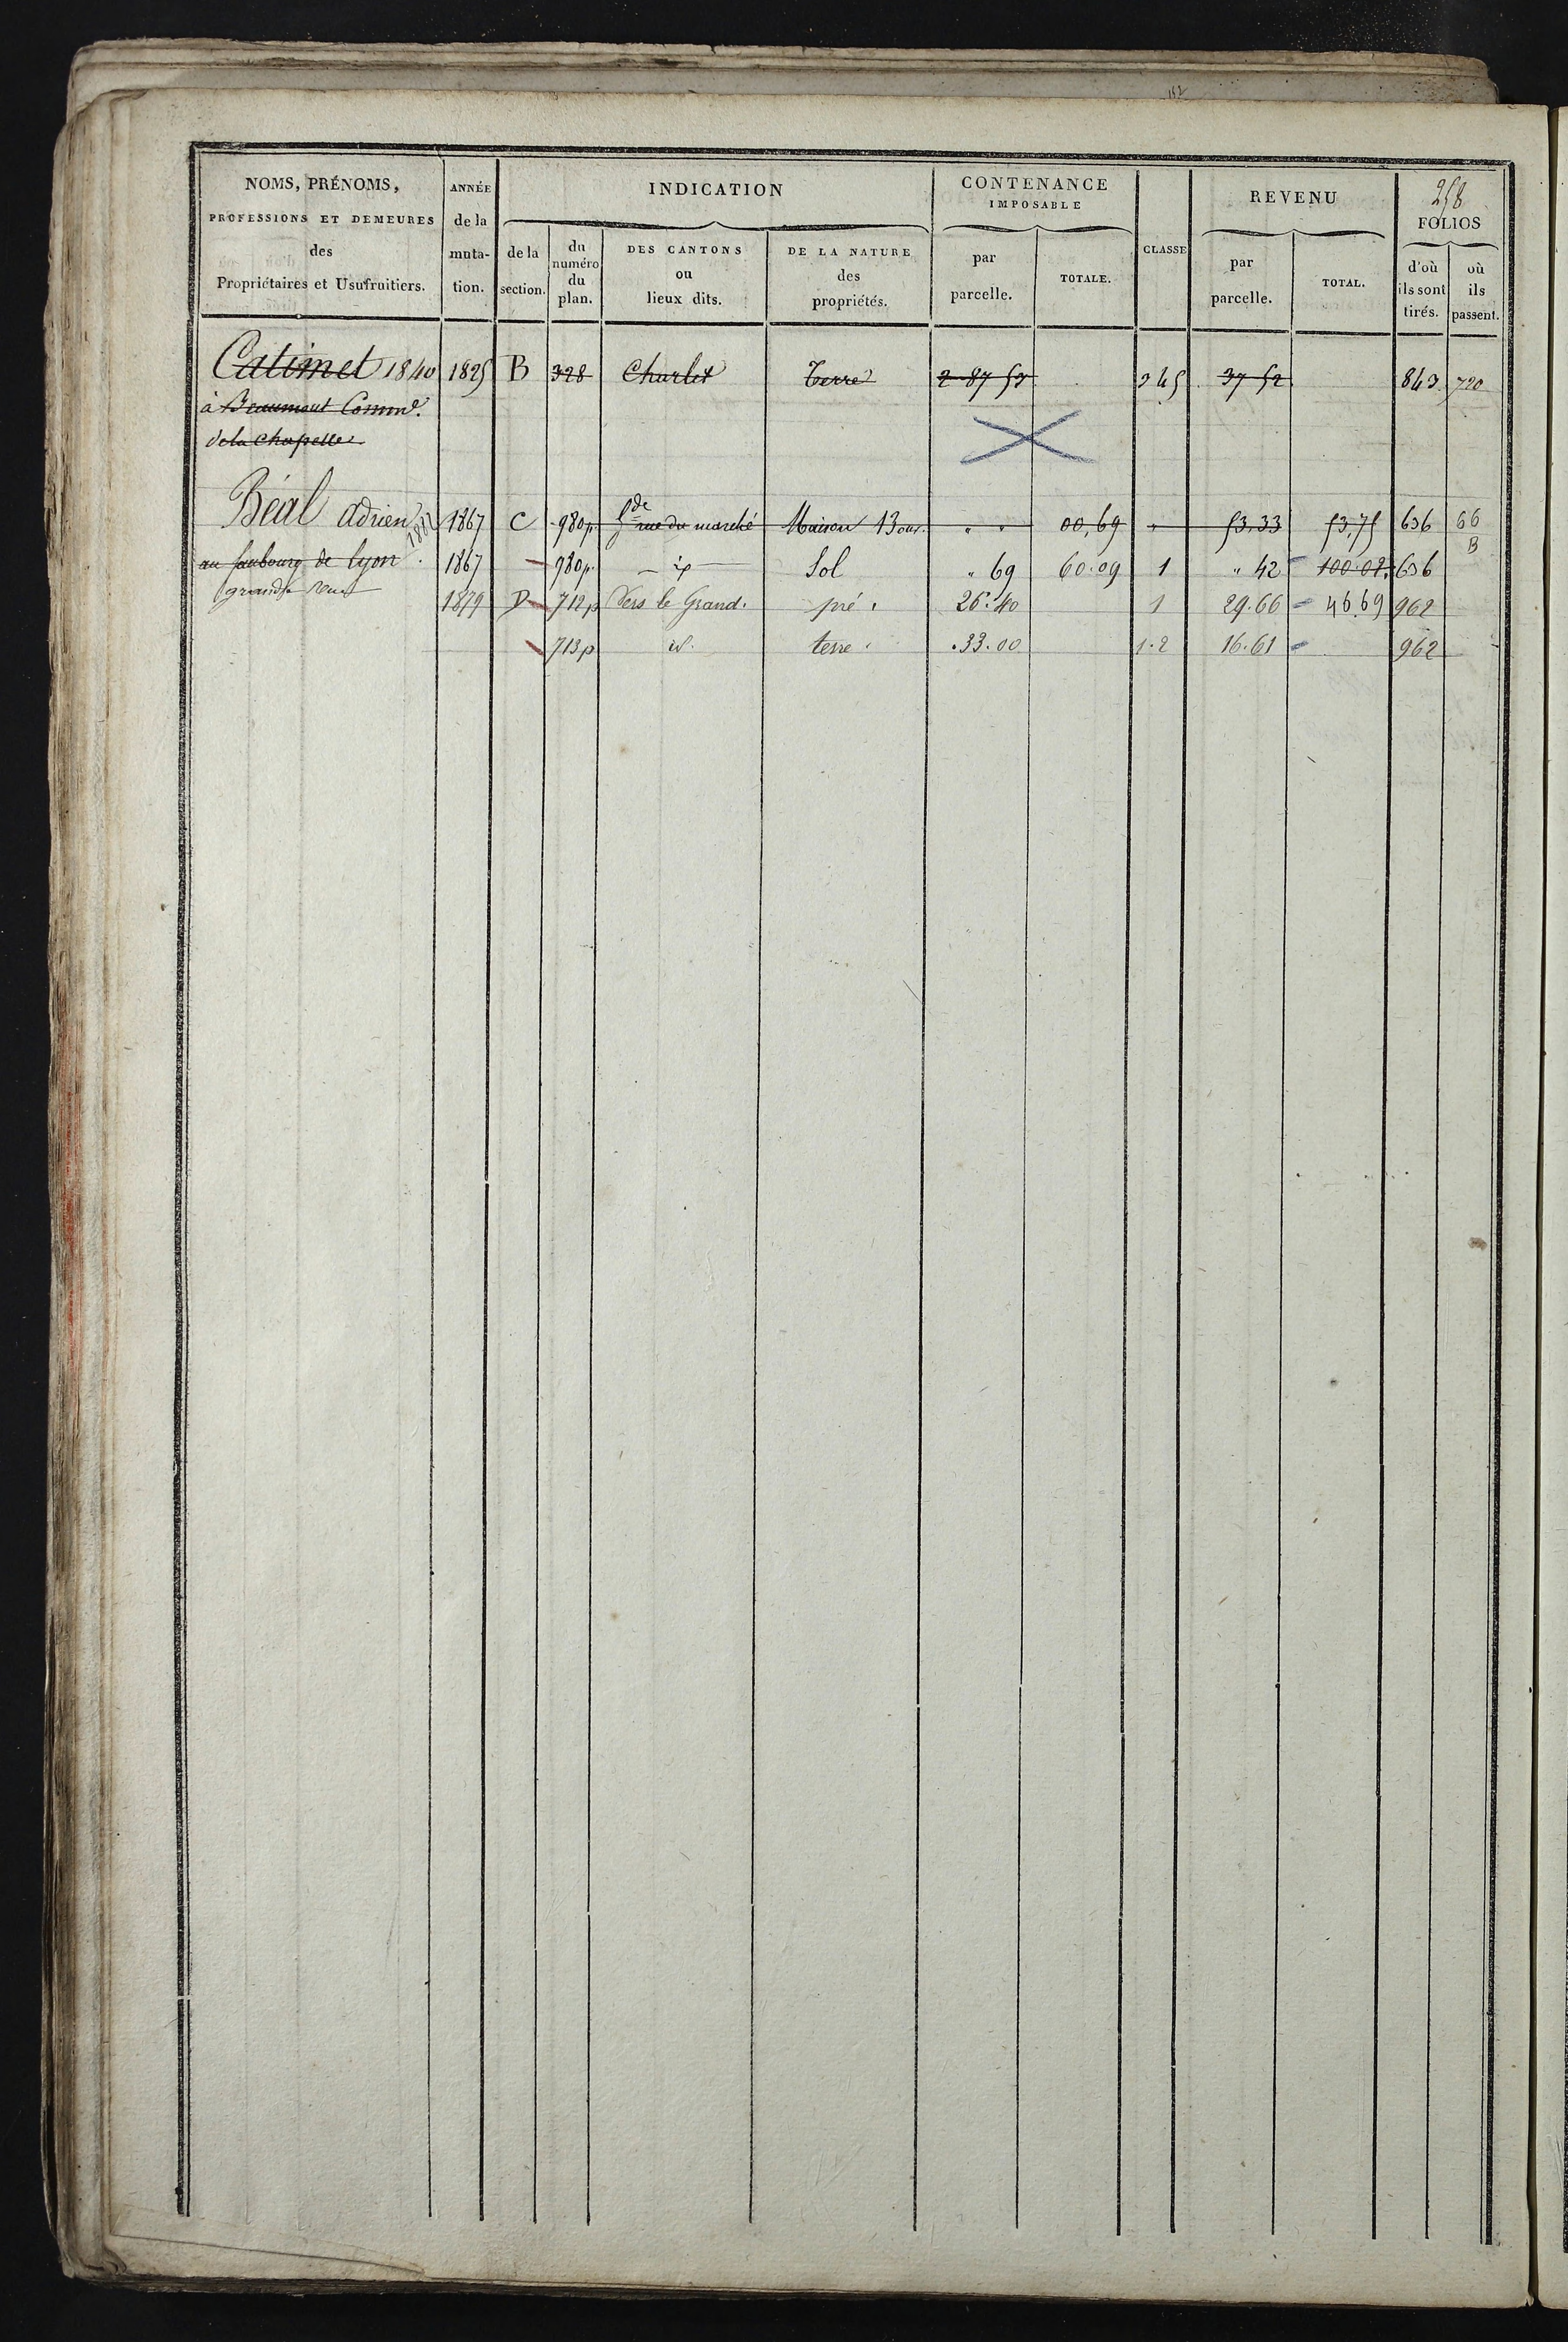 258
NOMS, PRÉNOMS, PROFESSIONS ET DEMEURES des Propriétaires et Usufruitiers.
ANNÉE de la muta- tion.
INDICATION
de la section.
du numéro du plan.
DES CANTONS ou lieux dits.
DE LA NATURE des propriétés.
CONTENANCE IMPOSABLE
par parcelle.
TOTALE.
CLASSE
REVENU
par parcelle.
TOTAL.
FOLIOS
d'où ils sont tirés.
où ils passent.
Catimel 1840 1825 B 328 Charlet Terre 2 87 53 345 37 52 843 720
à Beaumont Comm.e
de la Chapelle
Béal Adrien 1882 1867 C 980p. Gde rue du marché Maison 13 ouv. " " 00,69 " 53,33 53,75 636 66
B
au faubourg de Lyon 1867 980p. id Sol " 69 60.09 1 " 42 100.02 636
grande rue 1879 D 712p Vers le Grand. pré. 26.40 1 29.66 46.69 962
713p id. terre. .33.00 1.2 16.61 962